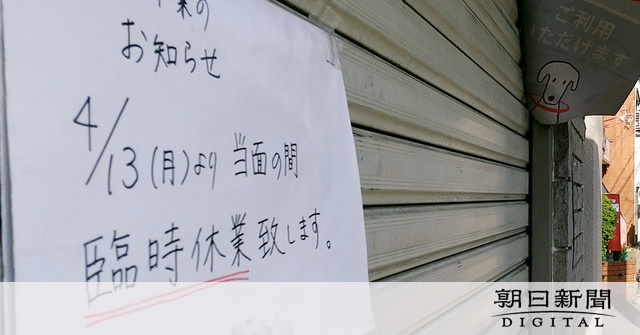 業の
お知らせ
4/13(月)より 当面の間
臨時休業致します。
ご利用
いただけます
朝日新聞
DIGITAL